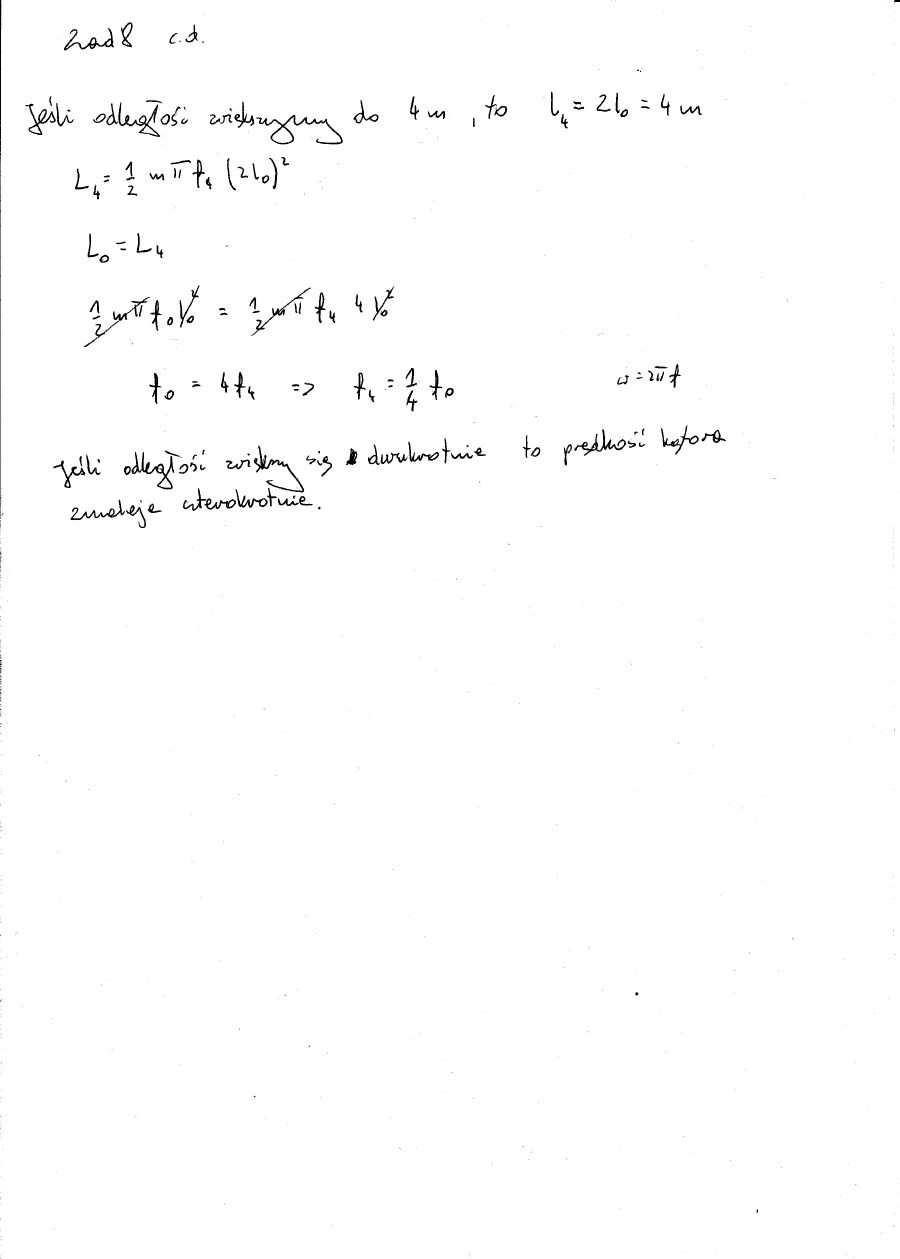 Zad 8 c.d.
Jeśli odległość zwiększymy do 4 m, to l₄ = 2l₀ = 4 m
L₄ = 1/2 m π f₄ (2l₀)²
L₀ = L₄
1/2 m π f₀ l₀² = 1/2 m π f₄ 4 l₀²
f₀ = 4f₄ => f₄ = 1/4 f₀ ω = 2πf
Jeśli odległość zwiększy się dwukrotnie to prędkość
zmaleje czterokrotnie.